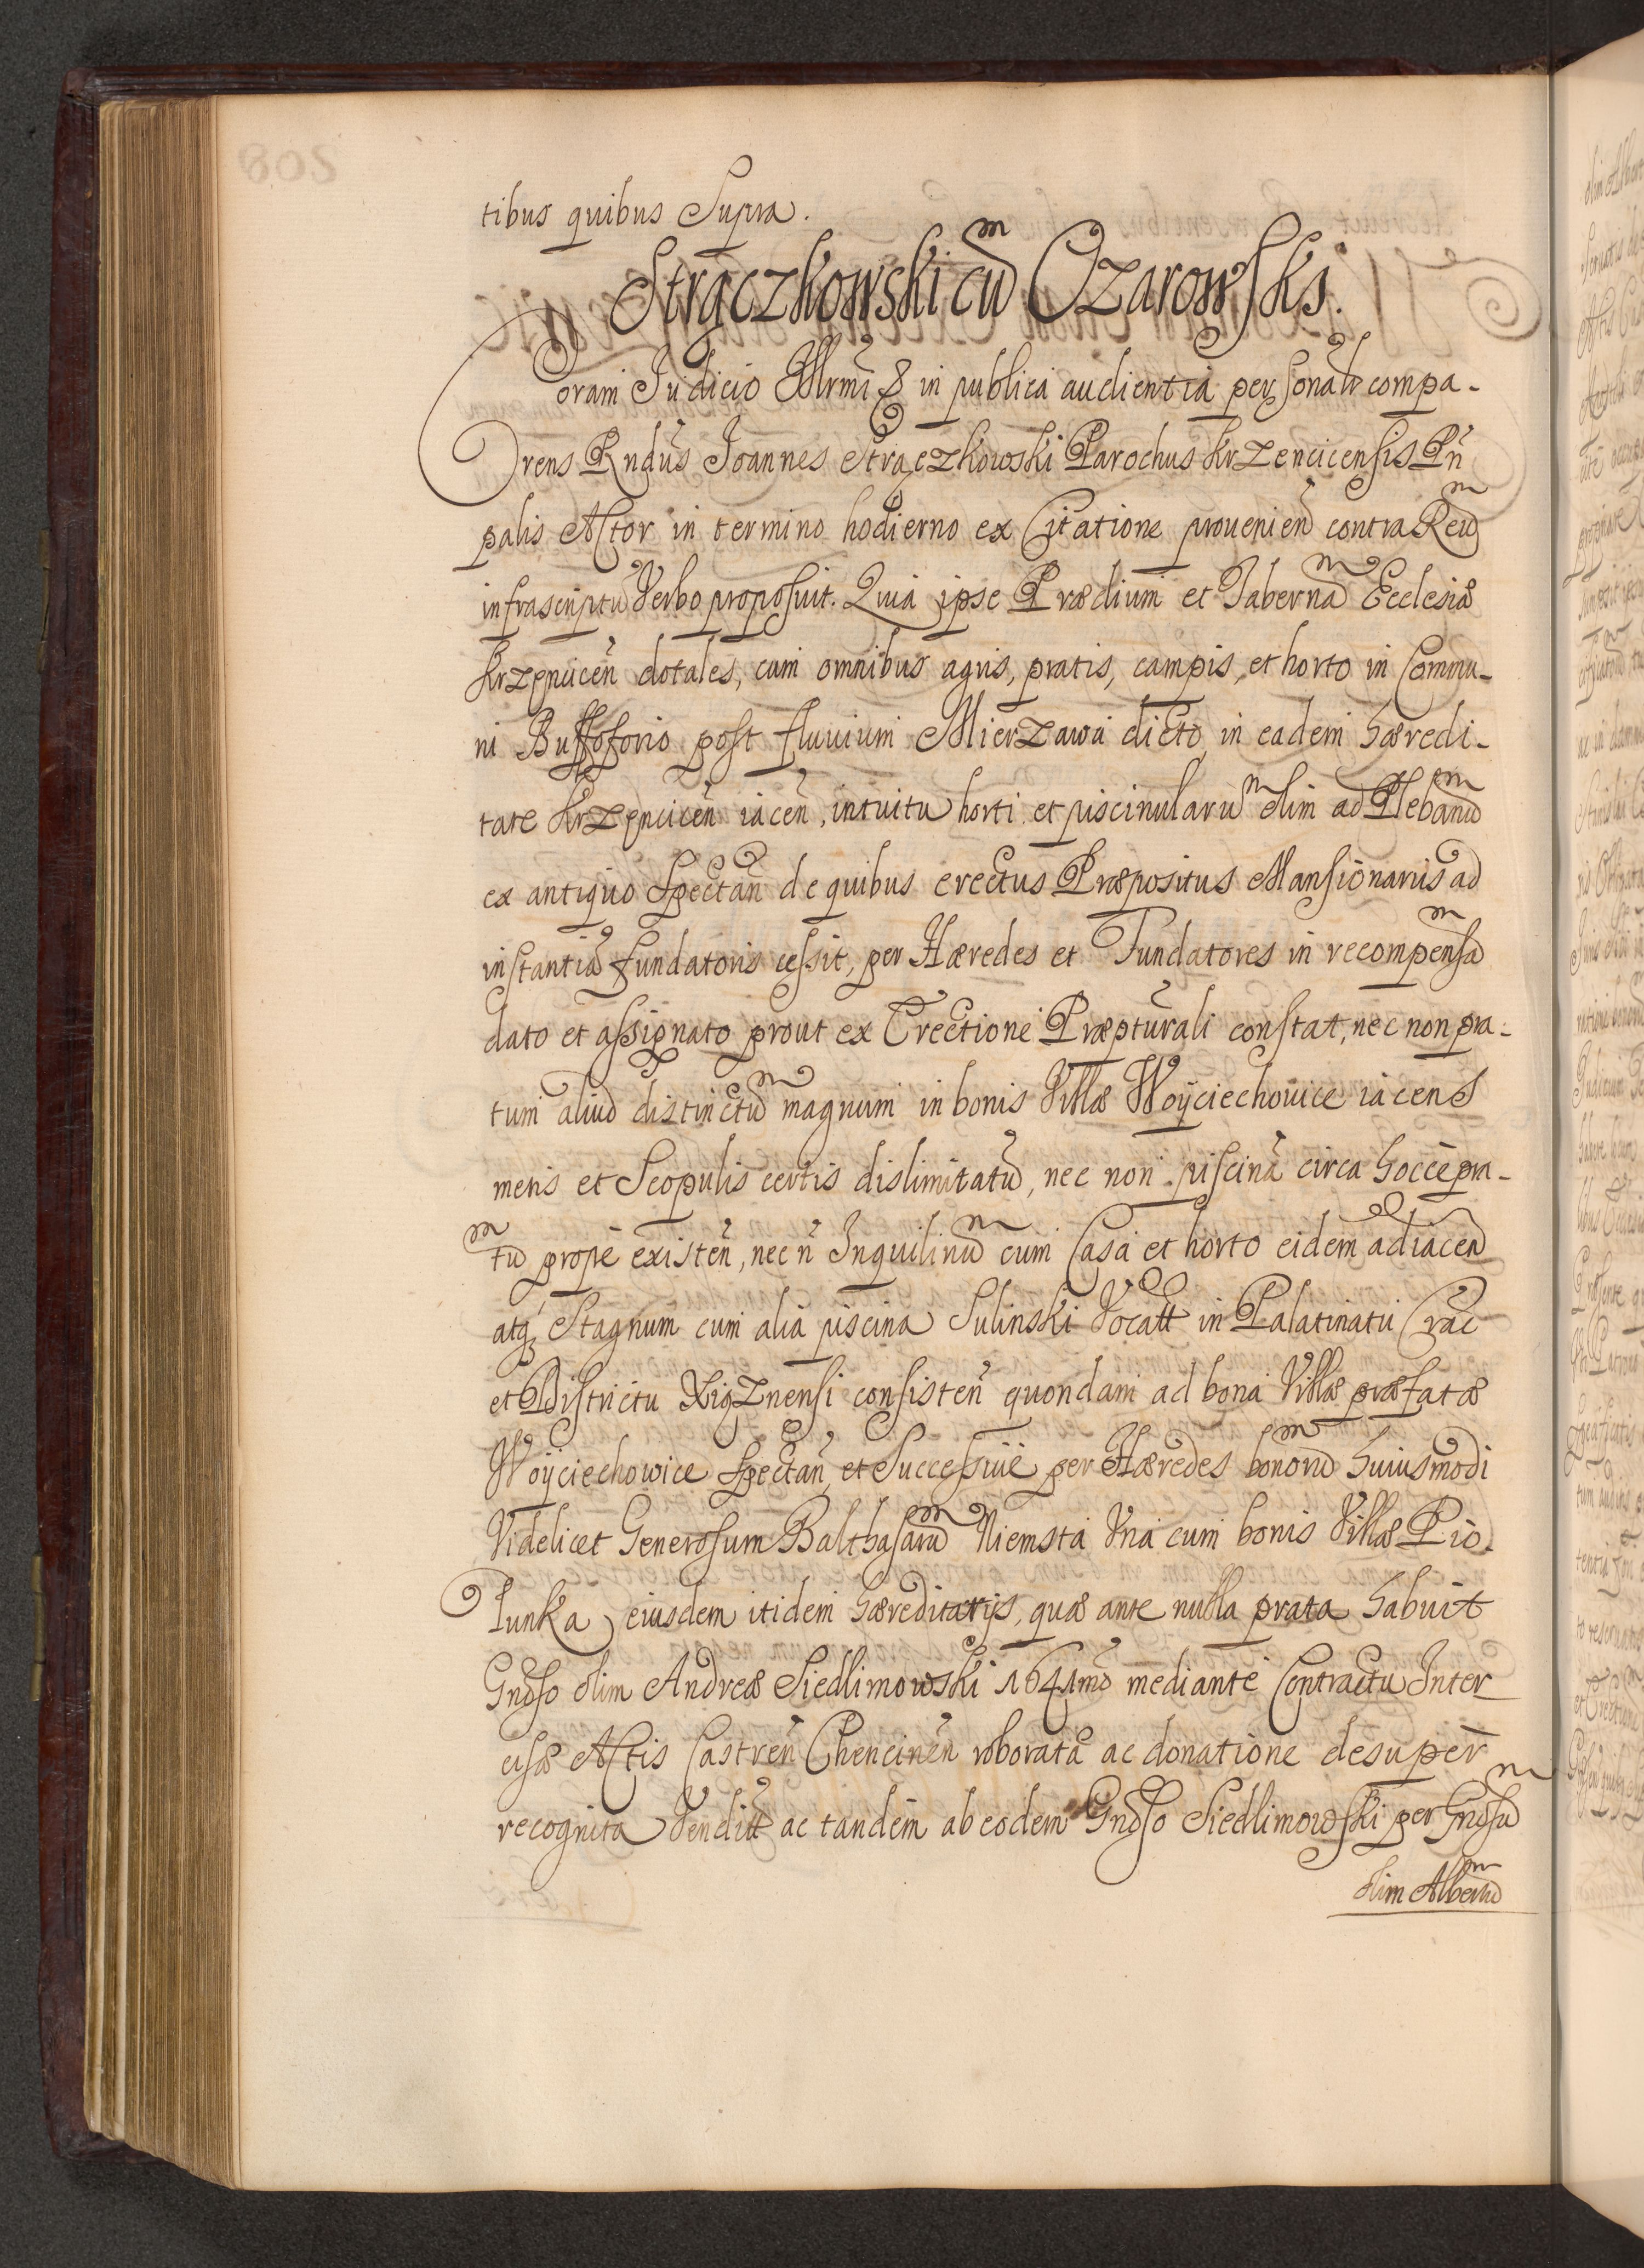 tibus quibus Supra.
Strączkowski cum Ożarowski.
Coram Judicio Illrmi & in publica audientia personalr compa-
rens Rndus Joannes Strączkowski Parochus Krzencicensis Pn
palis Actor in termino hodierno ex Citatione prouenien contra Reum
infrascriptu Verbo proposuit. Quia ipse Prædium et Tabernam Ecclesiæ
Krzęncicen dotales, cum omnibus agris, pratis, campis, et horto in Commu-
ni post fluuium Mierzawa dicto in eadem hæredi-
tate Krzęncicen iacen, intuitu horti et piscinularum olim ad Plebanum
ex antiquo Spectan de quibus erectus Præpositus Mansionariis ad
instantia fundatoris cessit, per Hæredes et Fundatores in recompensam
dato et assignato prout ex Erectione Præpturali constat, nec non pra-
tum aliud distinctum magnum in bonis Villæ Woyciechouice iacens
metis et Scopulis certis dislimitatum, nec non piscina circa hocce pra-
tum prope existen, nec n Inquilinum cum Casa et horto eidem adiacen
atq Stagnum cum alia piscina Sulinski Vocatt in Palatinatu Crac
et Districtu Xiąznensi consisten quondam ad bona Villæ præfatæ
Woyciechowice Spectan, et Successiue per Hæredes bonorum huiusmodi
Videlicet Generosum Balthasarum Niemsta Vna cum bonis Villæ Pio-
lunka eiusdem itidem hæreditarijs, quæ ante nulla prata habuit
Gnoso olim Andreæ Siedlimowski 1641mo mediante Contractu Inter
eisæ Actis Castren Chencinen roborata ac donatione desuper
recognita Venditt ac tandem ab eodem Gnoso Siedlimowski per Gnosum
olim Albertum